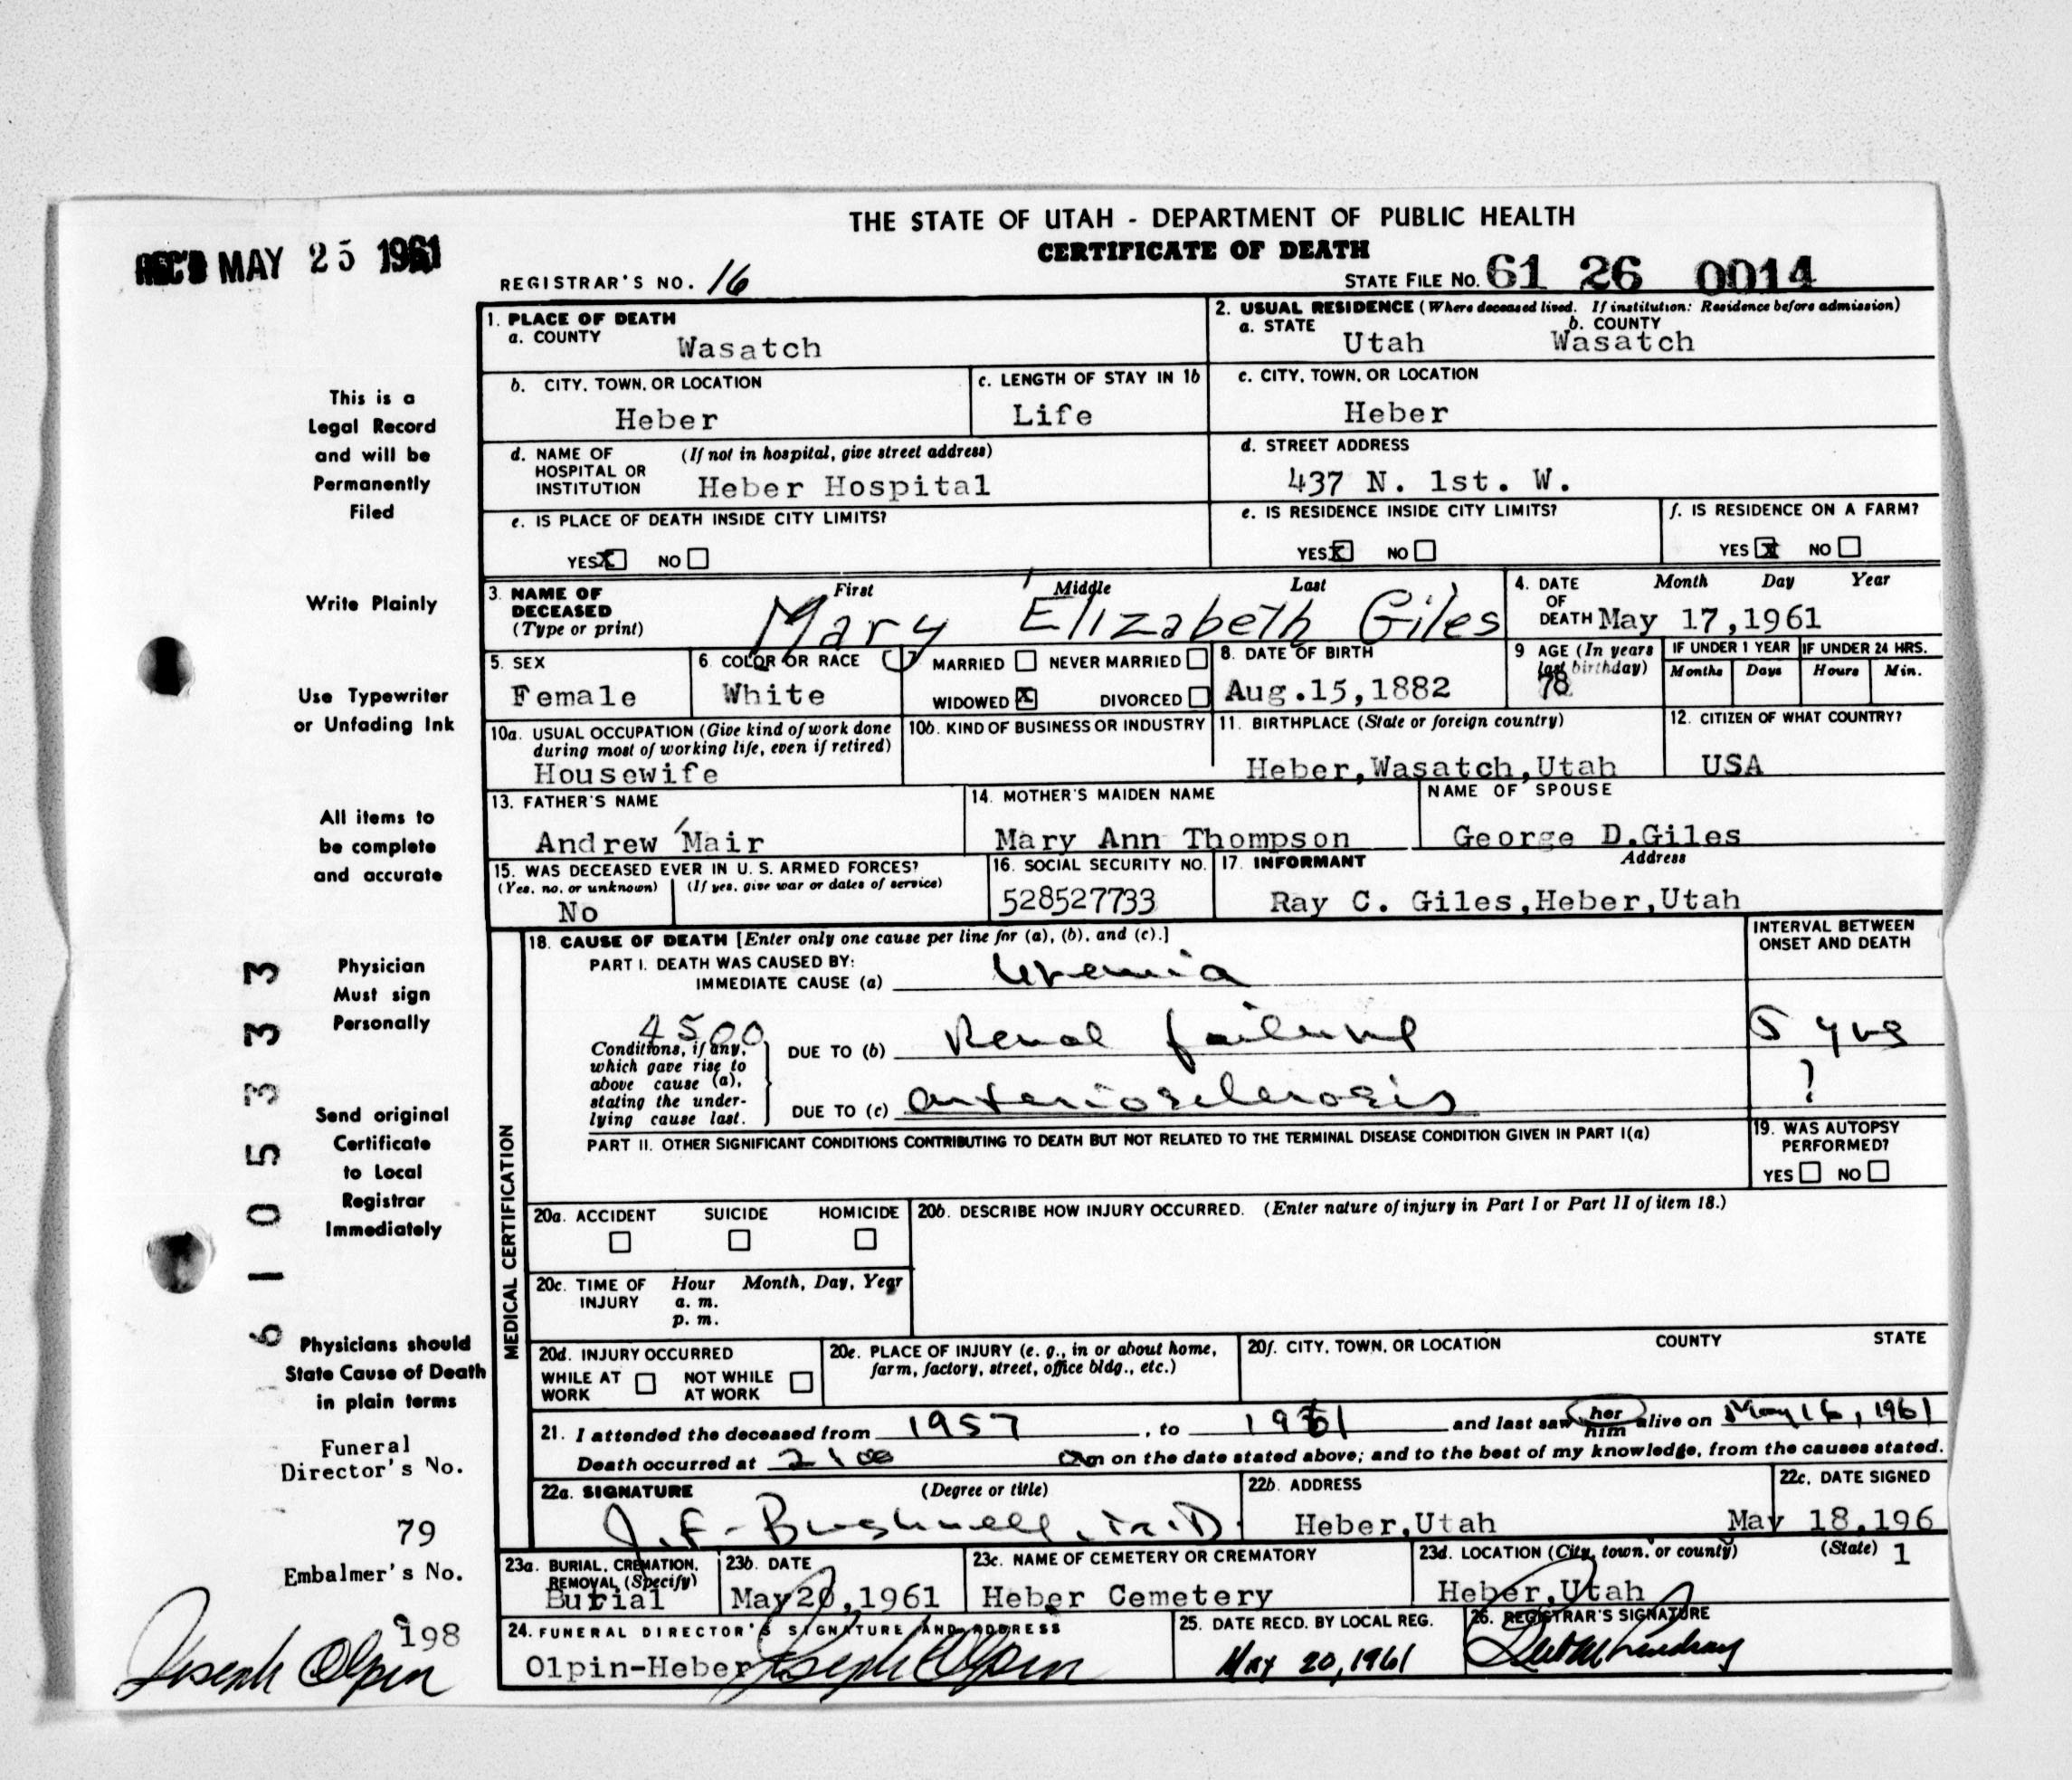 THE STATE OF UTAH - DEPARTMENT OF PUBLIC HEALTH
CERTIFICATE OF DEATH
REC'D MAY 25 1961
REGISTRAR'S NO. 16
STATE FILE NO. 61 26 0014
1. PLACE OF DEATH
a. COUNTY Wasatch
2. USUAL RESIDENCE (Where deceased lived. If institution: Residence before admission)
a. STATE Utah b. COUNTY Wasatch
b. CITY, TOWN, OR LOCATION Heber
c. LENGTH OF STAY IN 1b Life
c. CITY, TOWN, OR LOCATION Heber
d. NAME OF HOSPITAL OR INSTITUTION (If not in hospital, give street address) Heber Hospital
d. STREET ADDRESS 437 N. 1st. W.
e. IS PLACE OF DEATH INSIDE CITY LIMITS?
YES X NO
e. IS RESIDENCE INSIDE CITY LIMITS?
YES X NO
f. IS RESIDENCE ON A FARM?
YES X NO
3. NAME OF DECEASED (Type or print) First Middle Last
Mary Elizabeth Giles
4. DATE OF DEATH Month Day Year
May 17,1961
5. SEX Female
6. COLOR OR RACE White
MARRIED NEVER MARRIED
WIDOWED X DIVORCED
8. DATE OF BIRTH Aug.15,1882
9 AGE (In years last birthday) 78
IF UNDER 1 YEAR Months Days
IF UNDER 24 HRS. Hours Min.
10a. USUAL OCCUPATION (Give kind of work done during most of working life, even if retired)
Housewife
10b. KIND OF BUSINESS OR INDUSTRY
11. BIRTHPLACE (State or foreign country)
Heber,Wasatch,Utah
12. CITIZEN OF WHAT COUNTRY?
USA
13. FATHER'S NAME
Andrew Mair
14. MOTHER'S MAIDEN NAME
Mary Ann Thompson
NAME OF SPOUSE
George D.Giles
15. WAS DECEASED EVER IN U. S. ARMED FORCES?
(Yes, no, or unknown) (If yes, give war or dates of service)
No
16. SOCIAL SECURITY NO.
528527733
17. INFORMANT Address
Ray C. Giles,Heber,Utah
18. CAUSE OF DEATH [Enter only one cause per line for (a), (b), and (c).]
INTERVAL BETWEEN ONSET AND DEATH
PART I. DEATH WAS CAUSED BY:
IMMEDIATE CAUSE (a) Uremia
4500
Conditions, if any, which gave rise to above cause (a), stating the underlying cause last.
DUE TO (b) Renal failure 5 yrs
DUE TO (c) arteriosclerosis ?
PART II. OTHER SIGNIFICANT CONDITIONS CONTRIBUTING TO DEATH BUT NOT RELATED TO THE TERMINAL DISEASE CONDITION GIVEN IN PART I(a)
19. WAS AUTOPSY PERFORMED?
YES NO
MEDICAL CERTIFICATION
20a. ACCIDENT SUICIDE HOMICIDE
20b. DESCRIBE HOW INJURY OCCURRED. (Enter nature of injury in Part I or Part II of item 18.)
20c. TIME OF INJURY Hour Month, Day, Year
a. m.
p. m.
20d. INJURY OCCURRED
WHILE AT WORK NOT WHILE AT WORK
20e. PLACE OF INJURY (e. g., in or about home, farm, factory, street, office bldg., etc.)
20f. CITY, TOWN, OR LOCATION COUNTY STATE
21. I attended the deceased from 1957, to 1961 and last saw her him alive on May 16, 1961
Death occurred at 2:00 am on the date stated above; and to the best of my knowledge, from the causes stated.
22a. SIGNATURE (Degree or title)
J. F. Bushnell, M.D.
22b. ADDRESS
Heber,Utah
22c. DATE SIGNED
May 18,1961
23a. BURIAL, CREMATION, REMOVAL (Specify)
Burial
23b. DATE
May20,1961
23c. NAME OF CEMETERY OR CREMATORY
Heber Cemetery
23d. LOCATION (City, town, or county) (State)
Heber,Utah
24. FUNERAL DIRECTOR'S SIGNATURE AND ADDRESS
Olpin-Heber Joseph Olpin
25. DATE RECD. BY LOCAL REG.
May 20,1961
26. REGISTRAR'S SIGNATURE
This is a
Legal Record
and will be
Permanently
Filed
Write Plainly
Use Typewriter
or Unfading Ink
All items to
be complete
and accurate
Physician
Must sign
Personally
Send original
Certificate
to Local
Registrar
Immediately
Physicians should
State Cause of Death
in plain terms
6105333
Funeral
Director's No.
79
Embalmer's No.
198
Joseph Olpin